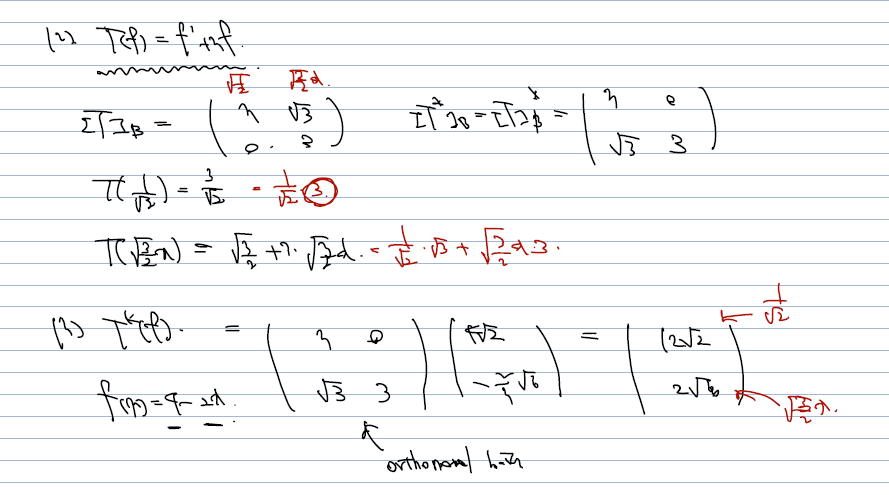 (2) T(f) = f' + 3f.
1/√2 √(3/2)x
[T]_B = ( 3 √3 ; 0 3 ) [T*]_B = [T]*_B = ( 3 0 ; √3 3 )
T(1/√2) = 3/√2 = 1/√2 · 3
T(√(3/2)x) = √(3/2) + 3·√(3/2)x. = 1/√2 · √3 + √(3/2)x·3.
(3) T*(f). = ( 3 0 ; √3 3 ) ( 4√2 ; -2/3 √6 ) = ( 12√2 ; 2√6 ) ← 1/√2
f(x) = 4 - 2x. ← √(3/2)x.
orthonormal